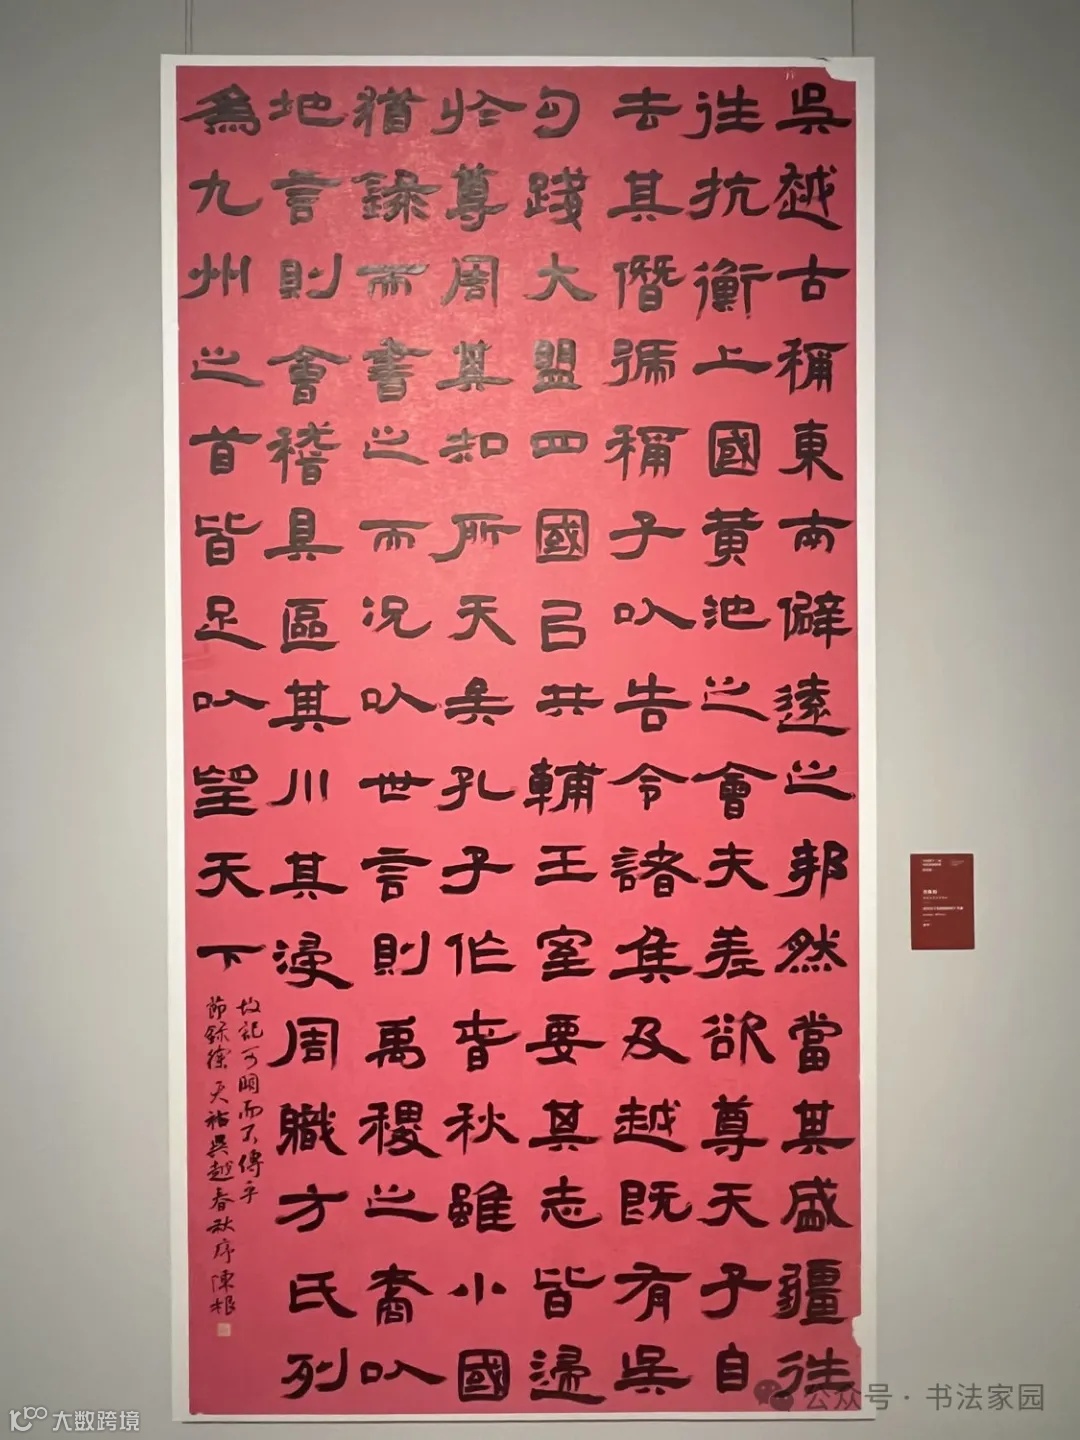 吳越古稱東南僻遠之邦然當其盛疆往
往抗衡上國黃池之會夫差欲尊天子自
去其僭號稱子以告令諸侯及越既有吳
勾踐大盟四國以共輔王室要其志皆歸
於尊周其知所天矣孔子作春秋雖小國
猶錄而書之而况以世言則禹稷之裔以
地言則會稽具區其川其浸周職方氏列
為九州之首皆足以望天下
故記可闕而不傳乎
節錄徐天祜吳越春秋序 陳根
公众号·书法家园
大数跨境